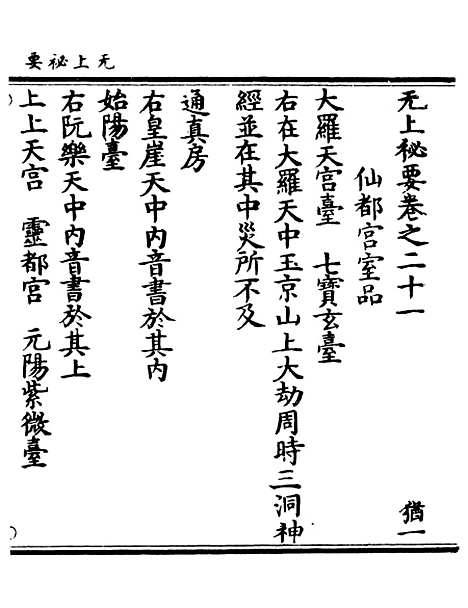 无上祕要
无上秘要卷之二十一 猶一
仙都宫室品
大羅天宫臺 七寶玄臺
右在大羅天中玉京山上大劫周時三洞神
經並在其中災所不及
通真房
右皇崖天中內音書於其內
始陽臺
右阮樂天中內音書於其上
上上天宫 靈都宫 元陽紫微臺